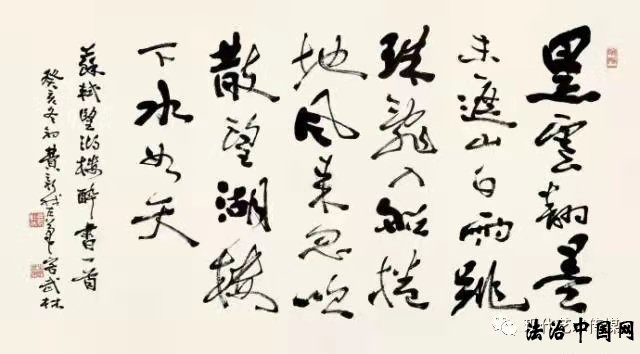 黑雲翻墨
未遮山白雨跳
珠亂入船捲
地風来忽吹
散望湖樓
下水如天
蘇軾望湖樓醉書一首
癸亥冬初費新我左筆客武林
法治中国网